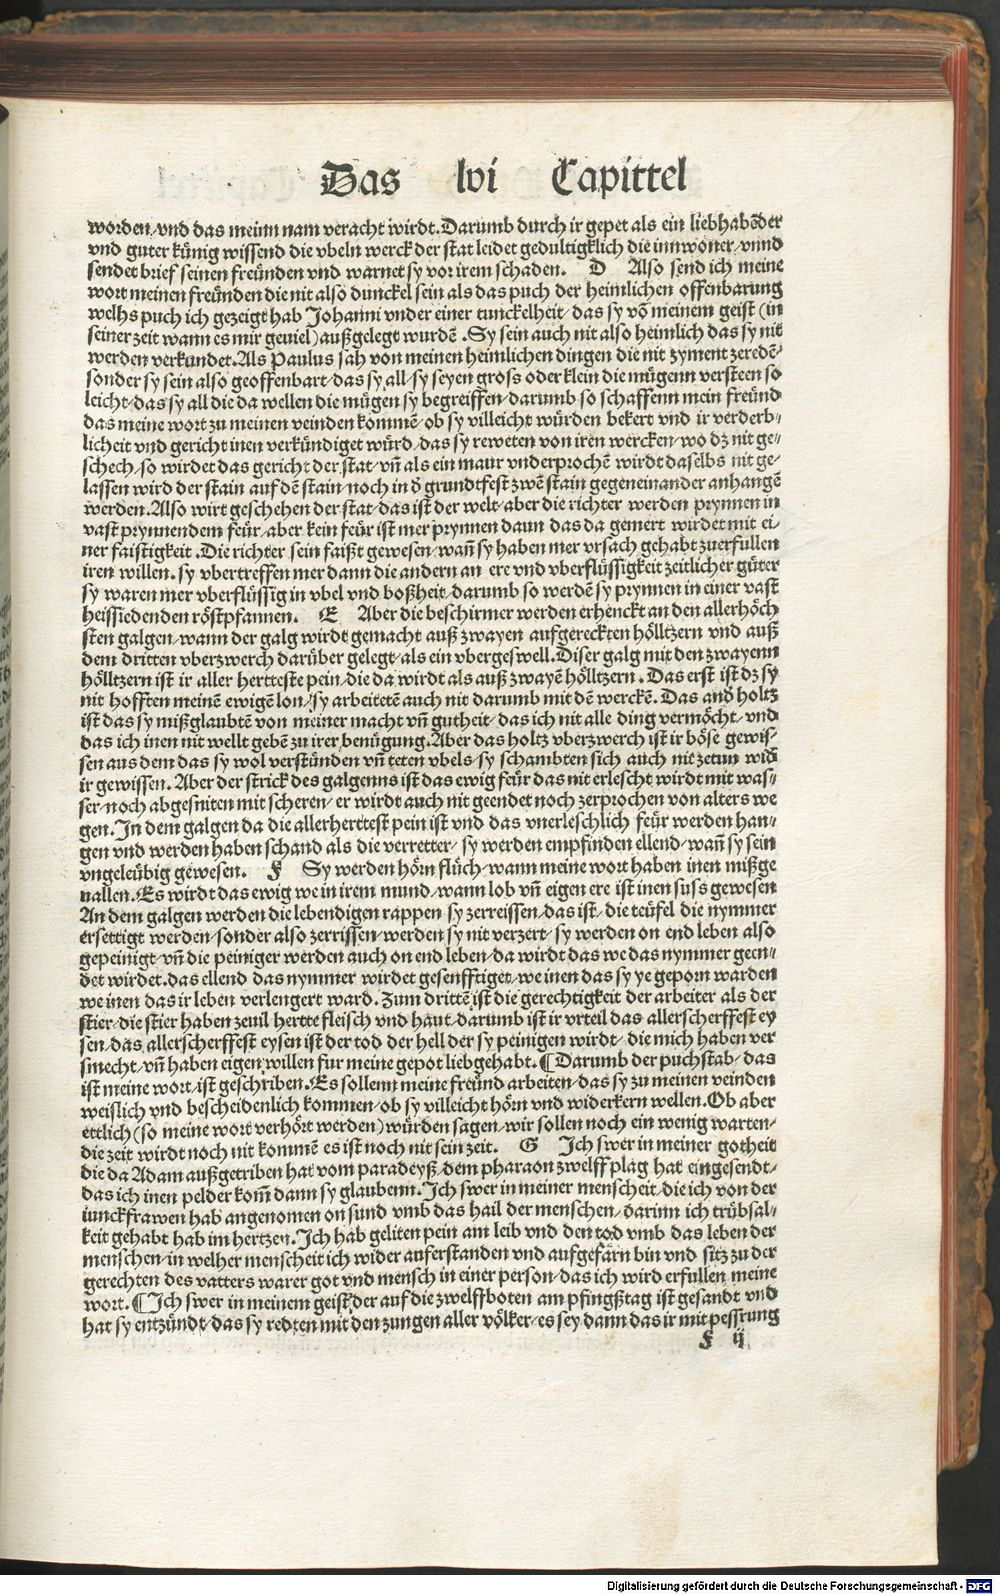 Das lvi Capittel
worden/vnd das meinn nam veracht wirdt. Darumb durch ir gepet als ein liebhabēder
vnd guter künig wissend die vbeln werck der stat leidet gedultigklich die innwoner/vnnd
sendet brief seinen freünden vnd warnet sy vor irem schaden. D Also send ich meine
wort meinen freünden die nit also dunckel sein als das puch der heimlichen offenbarung
welhs puch ich gezeigt hab Johanni vnder einer tunckelheit/das sy vō meinem geist (in
seiner zeit wann es mir geviel) außgelegt wurdē. Sy sein auch nit also heimlich das sy nit
werden verkundet. Als Paulus sah von meinen heimlichen dingen die nit zyment zeredē/
sonder sy sein also geoffenbart/das sy all/sy seyen gross oder klein die mügenn versteen so
leicht/das sy all die da wellen die mügen sy begreiffen/darumb so schaffenn mein freünd
das meine wort zu meinen veinden kommē/ob sy villeicht würden bekert vnd ir verderb/
licheit vnd gericht inen verkündiget würd/das sy reweten von iren wercken/wo dz nit ge/
schech/so wirdet das gericht der stat/vn̄ als ein maur vnderprochē wirdt daselbs nit ge/
lassen wird der stain auf dē stain/noch in d̄ grundtfest zwē stain gegeneinander anhangē
werden. Also wirt geschehen der stat/das ist der welt/aber die richter werden prynnen in
vast prynnendem feür/aber kein feür ist mer prynnen dann das da gemert wirdet mit ei/
ner faistigkeit. Die richter sein faißt gewesen/wan̄ sy haben mer vrsach gehabt zuerfullen
iren willen. sy vbertreffen mer dann die andern an ere vnd vberflüssigkeit zeitlicher güter
sy waren mer vberflüssig in vbel vnd boßheit/darumb so werdē sy prynnen in einer vast
heissiedenden röstpfannen. E Aber die beschirmer werden erhenckt an den allerhöch
sten galgen/wann der galg wirdt gemacht auß zwayen aufgereckten hölltzern vnd auß
dem dritten vberzwerch darüber gelegt/als ein vbergeswell. Diser galg mit den zwayenn
hölltzern ist ir aller hertteste pein/die da wirdt als auß zwayē hölltzern. Das erst ist dz sy
nit hofften meinē ewigē lon/sy arbeitetē auch nit darumb mit dē werckē. Das and̄ holtz
ist das sy mißglaubtē von meiner macht vn̄ gutheit/das ich nit alle ding vermöcht/vnd
das ich inen nit wellt gebē zu irer benügung. Aber das holtz vberzwerch ist ir böse gewis/
sen aus dem das sy wol verstünden vn̄ teten vbels/sy schambten sich auch nit zetun wid̄
ir gewissen. Aber der strick des galgenns ist das ewig feür das nit erlescht wirdt mit was/
ser/noch abgesniten mit scheren/er wirdt auch nit geendet noch zerprochen von alters we
gen. In dem galgen da die allerherttest pein ist vnd das vnerleschlich feür werden han/
gen vnd werden haben schand als die verretter/sy werden empfinden ellend/wan̄ sy sein
vngeleübig gewesen. F Sy werden hörn flüch/wann meine wort haben inen mißge
uallen. Es wirdt das ewig we in irem mund/wann lob vn̄ eigen ere ist inen suss gewesen
An dem galgen werden die lebendigen rappen sy zerreissen/das ist/die teüfel die nymmer
ersettigt werden/sonder also zerrissen/werden sy nit verzert/sy werden on end leben also
gepeinigt/vn̄ die peiniger werden auch on end leben/da wirdt das we das nymmer geen/
det wirdet. das ellend das nymmer wirdet gesenfftiget/we inen das sy ye geporn warden
we inen das ir leben verlengert ward. Zum drittē ist die gerechtigkeit der arbeiter als der
stier/die stier haben zeuil hertte fleisch vnd haut/darumb ist ir vrteil das allerscherffest ey
sen/das allerscherffest eysen ist der tod der hell der sy peinigen wirdt/die mich haben ver
smecht/vn̄ haben eigen willen fur meine gepot liebgehabt. ¶ Darumb der puchstab/das
ist meine wort/ist geschriben. Es sollenn meine freünd arbeiten/das sy zu meinen veinden
weislich vnd bescheidenlich kommen/ob sy villeicht hörn vnd widerkern wellen. Ob aber
ettlich (so meine wort verhört werden) würden sagen/wir sollen noch ein wenig warten/
die zeit wirdt noch nit kommē es ist noch nit sein zeit. G Ich swer in meiner gotheit
die da Adam außgetriben hat vom paradeyß/dem pharaon zwelff plag hat eingesendt/
das ich inen pelder kom̄ dann sy glaubenn. Ich swer in meiner menscheit/die ich von der
iunckfrawen hab angenomen on sund vmb das hail der menschen/darinn ich trübsal/
keit gehabt hab im hertzen. Ich hab geliten pein am leib vnd den tod vmb das leben der
menschen/in welher menscheit ich wider auferstanden vnd aufgefarn bin vnd sitz zu der
gerechten des vatters warer got vnd mensch in einer person/das ich wird erfullen meine
wort. ¶ Ich swer in meinem geist/der auf die zwelffboten am pfingßtag ist gesandt vnd
hat sy entzündt/das sy redten mit den zungen aller völker/es sey dann das ir mit pessrung
F ij
Digitalisierung gefördert durch die Deutsche Forschungsgemeinschaft - DFG